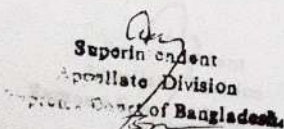 Superin endent
Appellate Division
Supreme Court of Bangladesh.